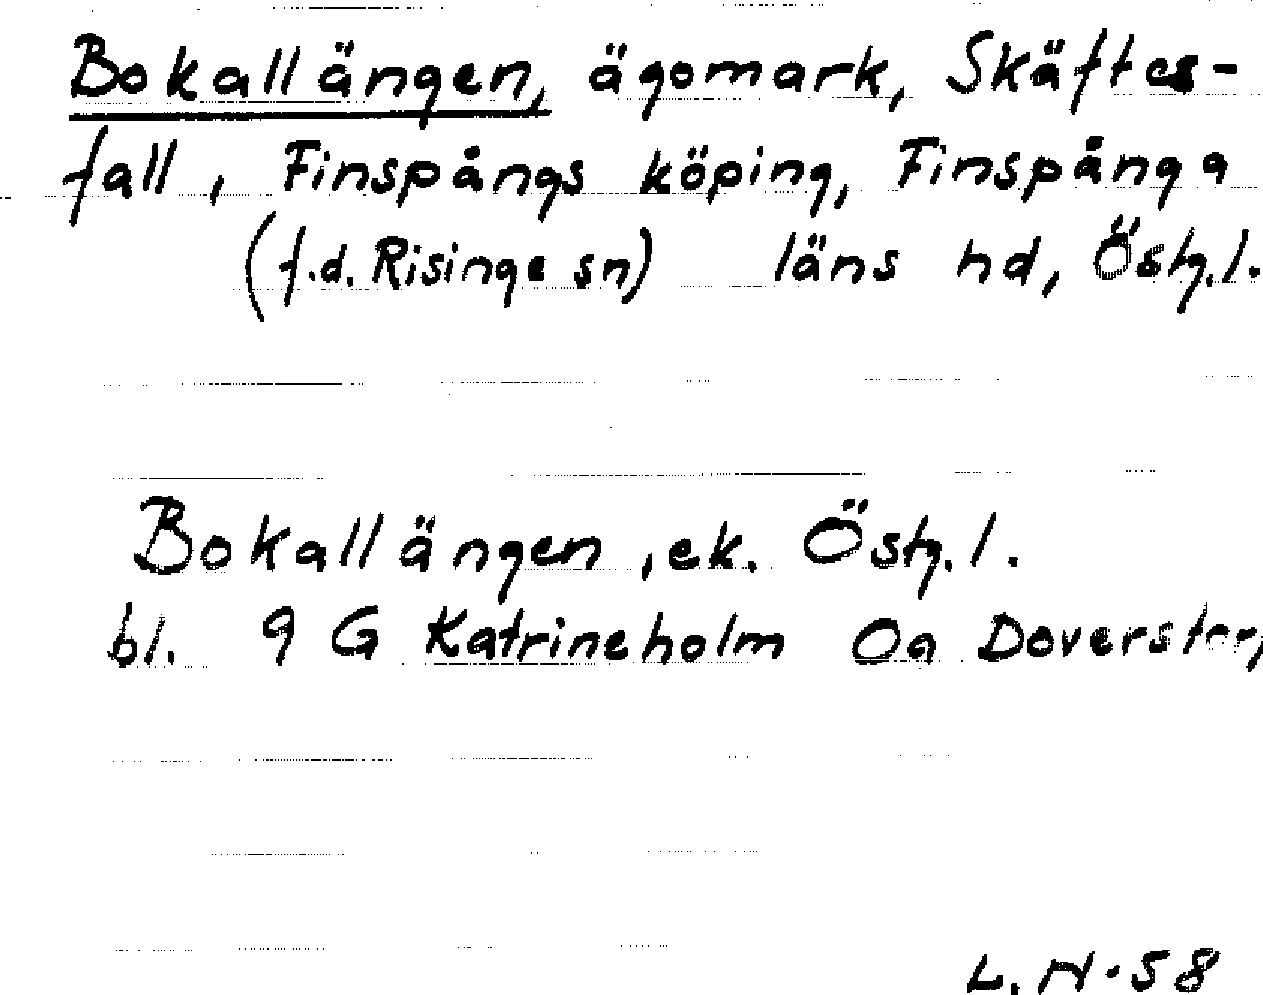 Bokallängen, ägomark, Skäftes-
fall, Finspångs köping, Finspånga
(f.d. Risinge sn) läns hd, Östg.l.
Bokallängen, ek. Östg.l.
bl. 9 G Katrineholm Oa Doverstorp
L.N.58